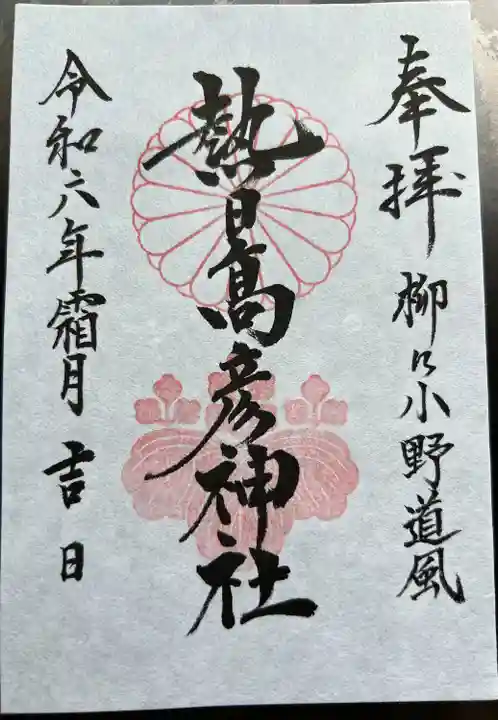 奉拝 柳に小野道風
熱日高彦神社
令和六年霜月吉日